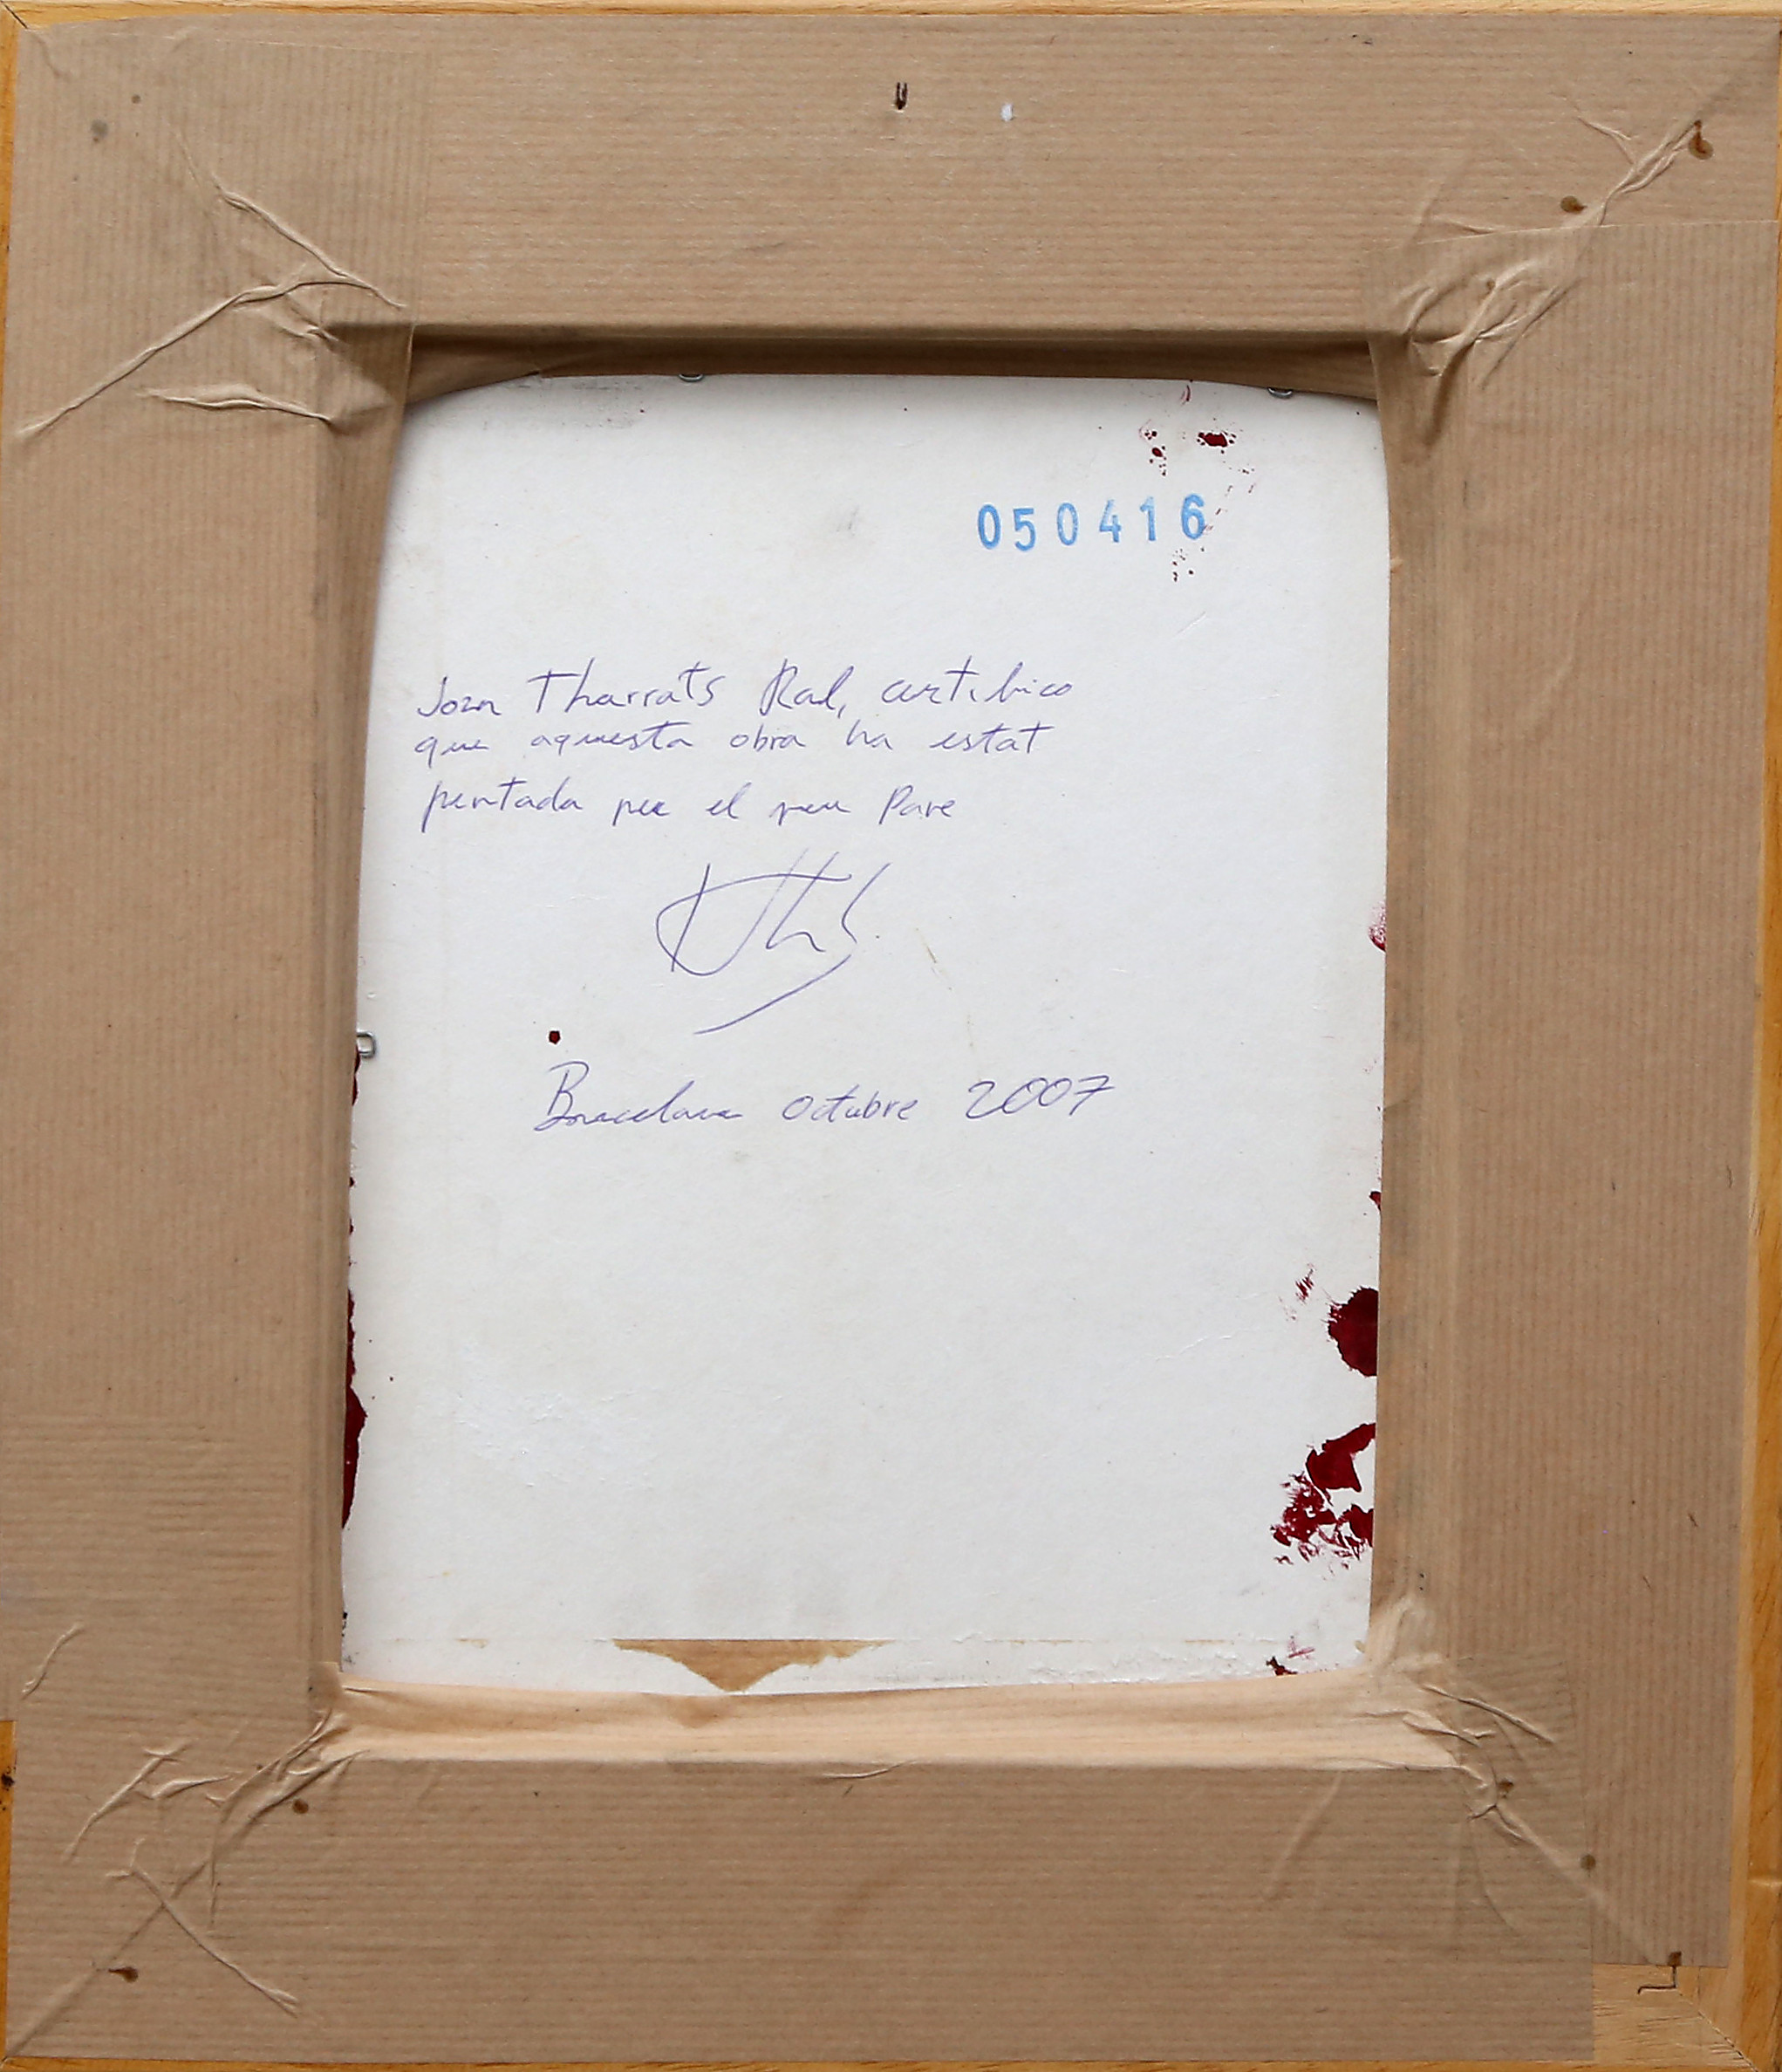 050416
Joan Tharrats Ral, certifico
que aquesta obra ha estat
pentada per el meu Pare
Barcelona Octubre 2007